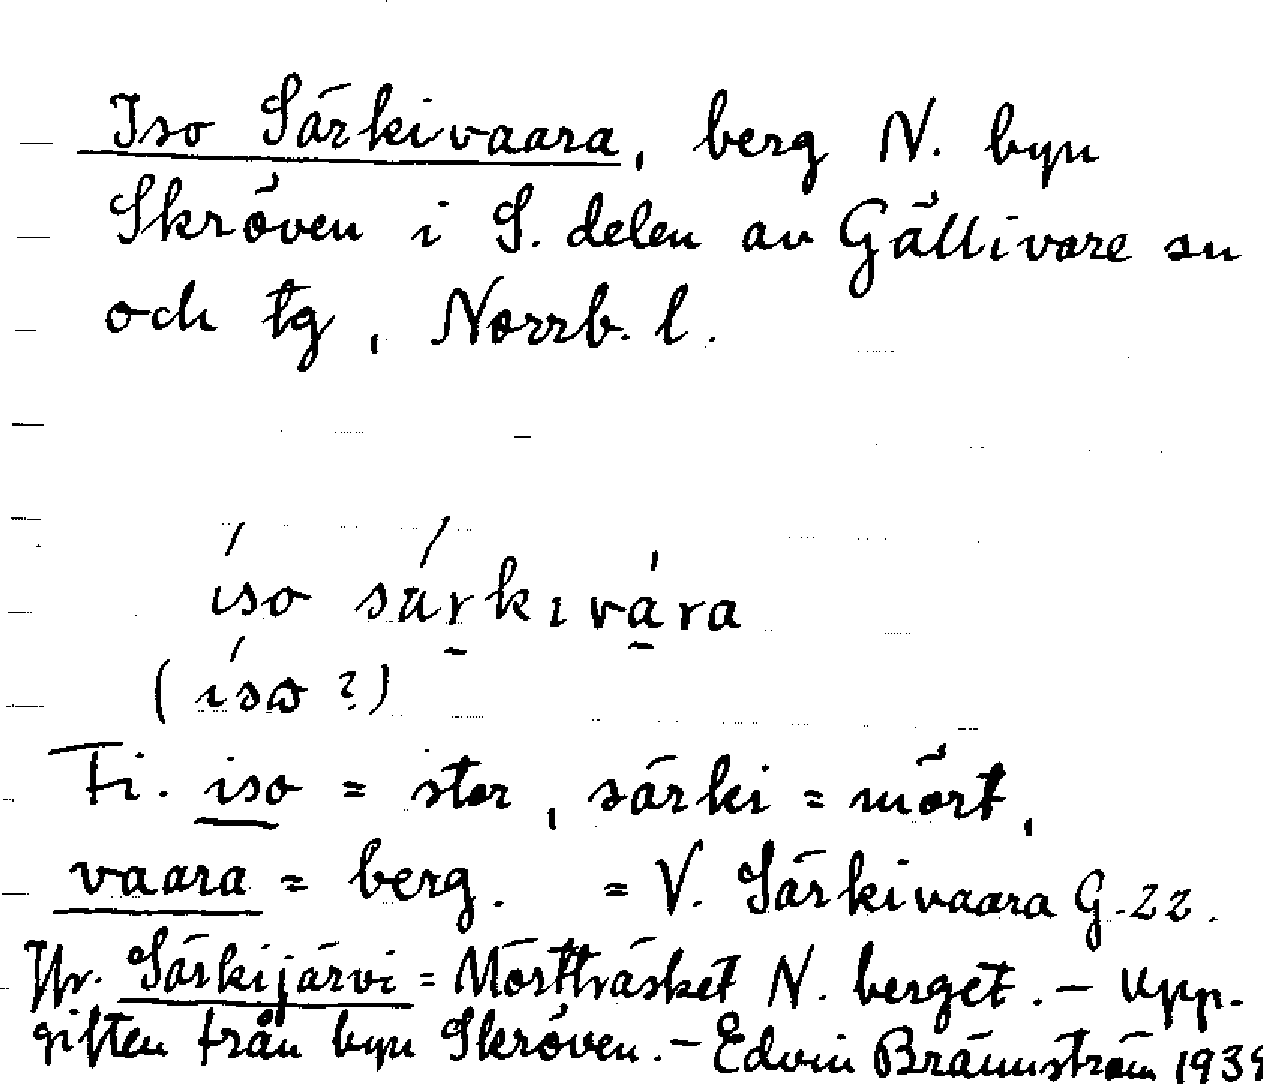 Iso Särkivaara, berg N. byn
Skröven i S. delen av Gällivare sn
och tg, Norrb. l.
íso särkıvára
(ísɷ ?)
Fi. iso = stor, särki = mört,
vaara = berg. = V. Särkivaara G. 22.
Jfr. Särkijärvi = Mörtträsket N. berget. – Upp-
giften från byn Skröven. – Edvin Brännström